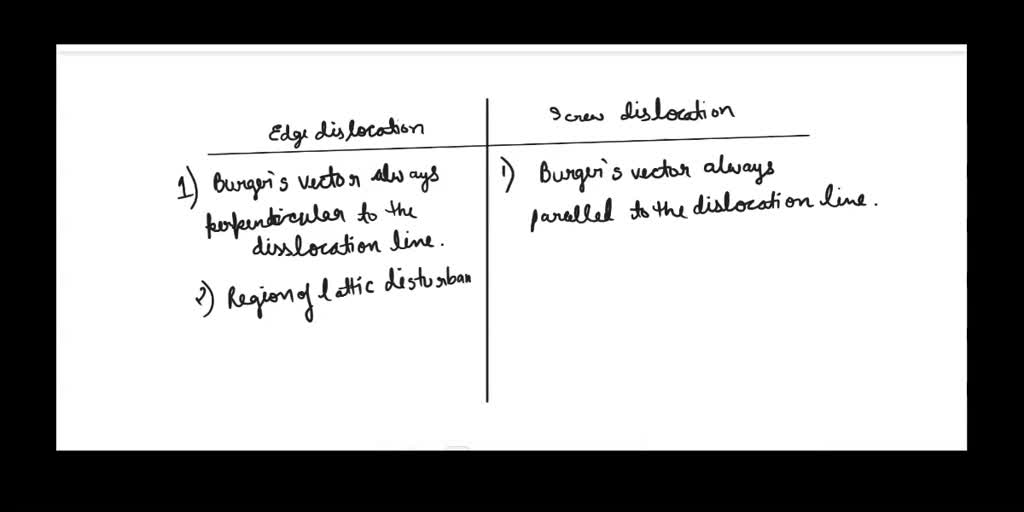 Edge dislocation
Screw dislocation
1) Burger's vector always
perpendicular to the
disslocation line.
2) Region of lattic disturban
1) Burger's vector always
paralled to the dislocation line.